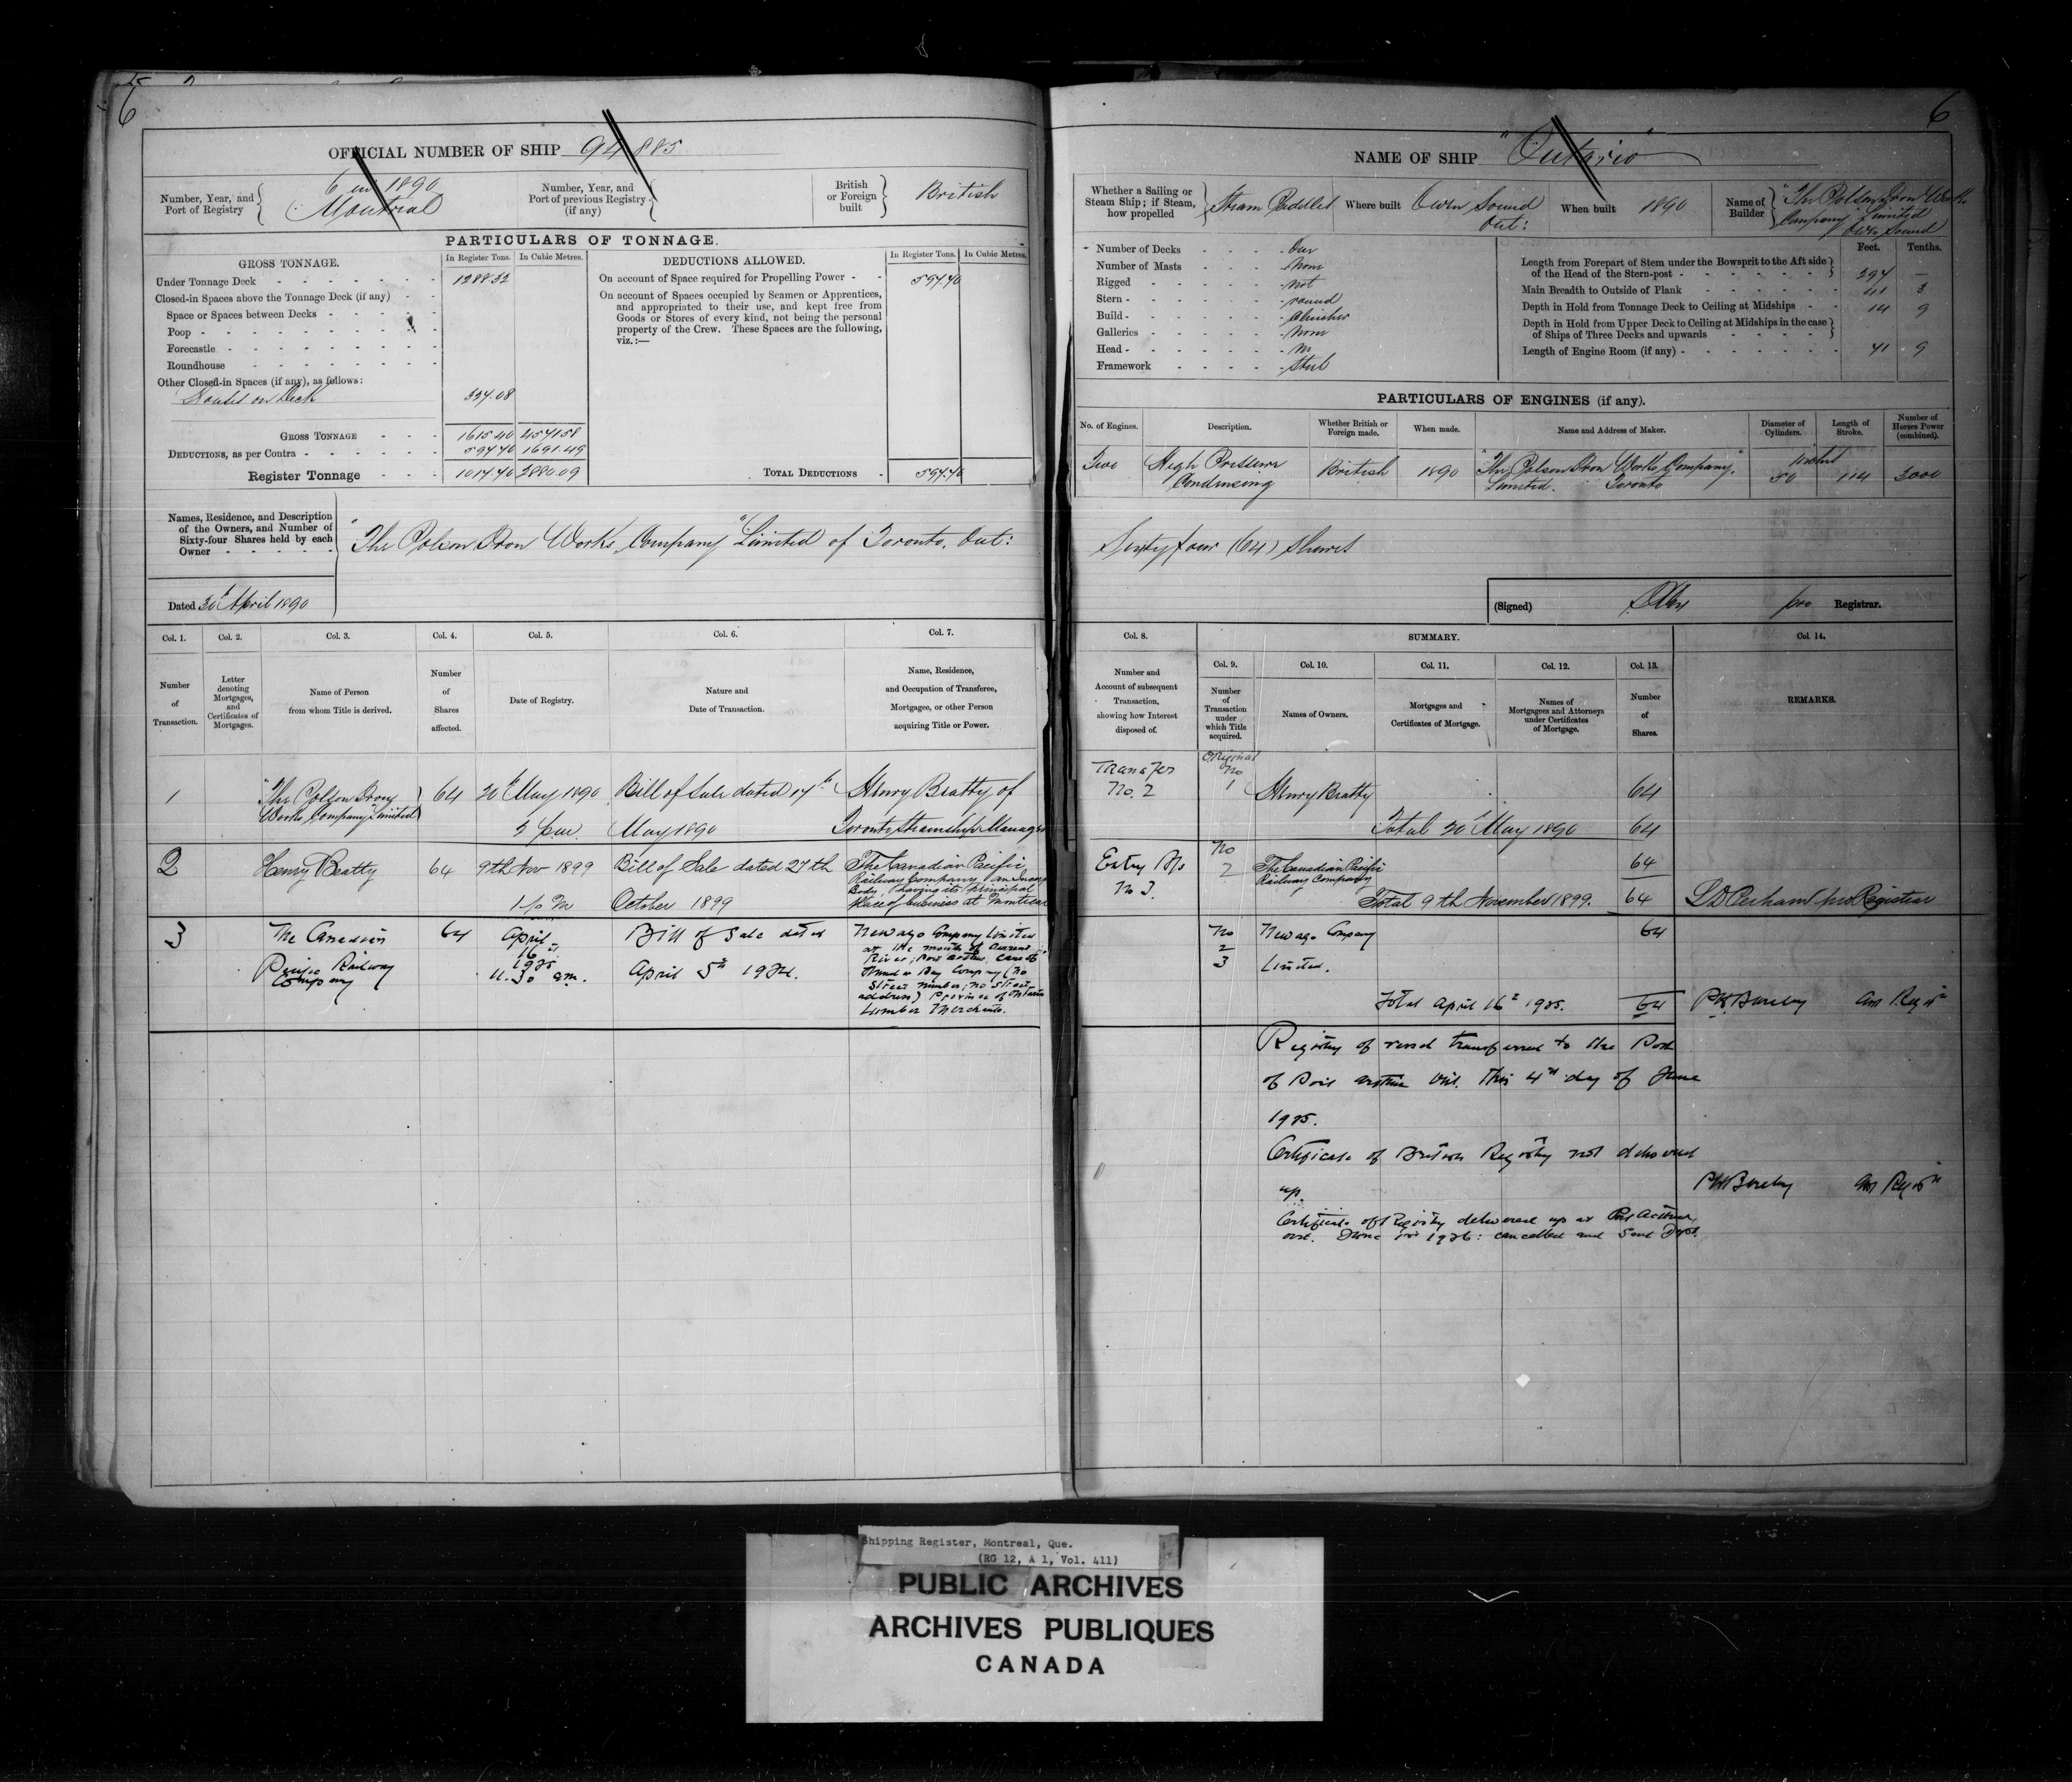 6
OFFICIAL NUMBER OF SHIP 94885
Number, Year, and Port of Registry { 6 in 1890 Montreal
Number, Year, and Port of previous Registry (if any) {
British or Foreign built } British
PARTICULARS OF TONNAGE.
GROSS TONNAGE.
In Register Tons. In Cubic Metres.
Under Tonnage Deck 1288.32
Closed-in Spaces above the Tonnage Deck (if any)
Space or Spaces between Decks
Poop
Forecastle
Roundhouse
Other Closed-in Spaces (if any), as follows:
Houses on Deck 327.08
GROSS TONNAGE 1615.40 4571.58
DEDUCTIONS, as per Contra 597.70 1691.49
Register Tonnage 1017.70 2880.09
DEDUCTIONS ALLOWED.
In Register Tons. In Cubic Metres.
On account of Space required for Propelling Power 597.70
On account of Spaces occupied by Seamen or Apprentices,
and appropriated to their use, and kept free from
Goods or Stores of every kind, not being the personal
property of the Crew. These Spaces are the following,
viz.:—
TOTAL DEDUCTIONS 597.70
Names, Residence, and Description
of the Owners, and Number of
Sixty-four Shares held by each
Owner
"The Polson Iron Works Company" Limited of Toronto, Ont:
Dated 30th April 1890
Col. 1. Col. 2. Col. 3. Col. 4. Col. 5. Col. 6. Col. 7.
Number of Transaction.
Letter denoting Mortgages, and Certificates of Mortgages.
Name of Person from whom Title is derived.
Number of Shares affected.
Date of Registry.
Nature and Date of Transaction.
Name, Residence, and Occupation of Transferee, Mortgagee, or other Person acquiring Title or Power.
1 "The Polson Iron Works Company" Limited 64 20th May 1890 Bill of Sale dated 17th May 1890 Henry Beatty of Toronto Steamship Manager
2 Henry Beatty 64 9th Nov 1899 Bill of Sale dated 27th October 1899 The Canadian Pacific
Railway Company, an
Body, having its principal
place of business at Montreal
3 The Canadian Pacific Railway Company 64 April 16th 1925 11.30 am. Bill of Sale dated April 5th 1924.
Newago Company Limited
at the mouth of Current
River, Port Arthur, care of
Thunder Bay Company (no
street number, no street
address) Province of Ontario
Lumber Merchants.
6
NAME OF SHIP "Ontario"
Whether a Sailing or Steam Ship; if Steam, how propelled } Steam Paddles
Where built Owen Sound Ont:
When built 1890
Name of Builder { "The Polson Iron Works Company" Limited Owen Sound
Number of Decks One
Number of Masts None
Rigged not
Stern round
Build Clincher
Galleries None
Head no
Framework Steel
Feet. Tenths.
Length from Forepart of Stem under the Bowsprit to the Aft side of the Head of the Stern-post 297 —
Main Breadth to Outside of Plank 41 3
Depth in Hold from Tonnage Deck to Ceiling at Midships 14 9
Depth in Hold from Upper Deck to Ceiling at Midships in the case of Ships of Three Decks and upwards
Length of Engine Room (if any) 41 9
PARTICULARS OF ENGINES (if any).
No. of Engines. Description. Whether British or Foreign made. When made. Name and Address of Maker. Diameter of Cylinders. Length of Stroke. Number of Horses Power (combined).
Two High Pressure Condensing British 1890 "The Polson Iron Works Company" Limited. Toronto inches 50 114 3000
Sixty four (64) Shares
(Signed) Registrar.
Col. 8. SUMMARY. Col. 14.
Col. 9. Col. 10. Col. 11. Col. 12. Col. 13.
Number and Account of subsequent Transaction, showing how Interest disposed of.
Number of Transaction under which Title acquired.
Names of Owners.
Mortgages and Certificates of Mortgage.
Names of Mortgagees and Attorneys under Certificates of Mortgage.
Number of Shares.
REMARKS.
Transfer No. 2 Original No 1 Henry Beatty 64
Total 20th May 1890 64
Entry No 3. No 2 The Canadian Pacific Railway Company 64
Total 9th November 1899. 64 Perham pro Registrar
No 2 3 Newago Company Limited. 64
Total April 16th 1925. 64
Registry of vessel transferred to the Port
of Port Arthur Ont. This 4th day of June
1925.
Certificate of British Registry not delivered
up.
Certificate of Registry delivered up at Port Arthur,
Ont. June 1926: cancelled and sent Dept.
Shipping Register, Montreal, Que.
(RG 12, A 1, Vol. 411)
PUBLIC ARCHIVES
ARCHIVES PUBLIQUES
CANADA